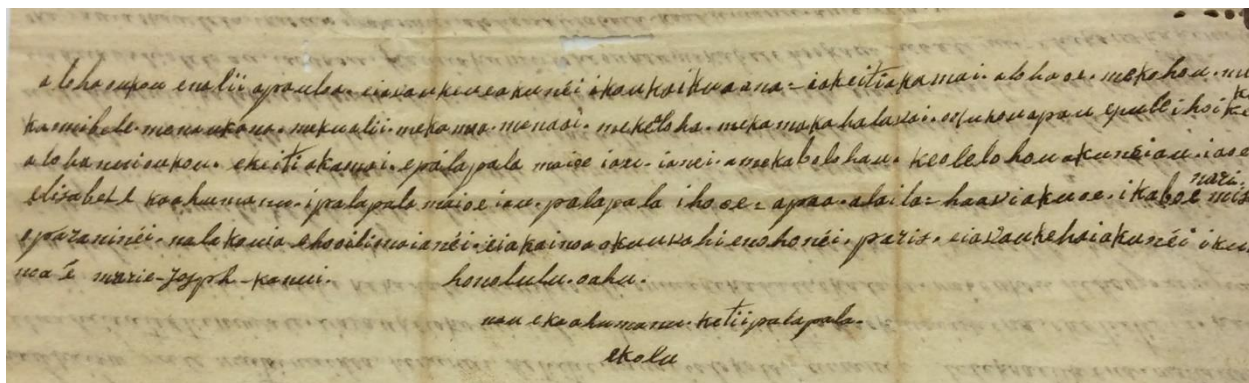 aloha oukou enalii apauloa. eia vau ke uea aku nei i kou kaikuaana = iakeitiakamai. aloha oe. me kohou. me
kamihele. manaukana. mekualii. mekamaa. manaoi. mekeloha. mekamakahalavai. oukou apau epule ihoike
aloha nui oukou. ekiitiakamai. epalapala mai oe iau. ianei. amekabolohau. keolelo hou aku nei au iaoe
elisabete kaahumanu. ipalapala mai oe iau. palapala iho oe = apaa. alaila = haavi aku oe. ikaboe nazi= mis
eparani nei. nalakou ia e hooili mai anei. eia ka inoa okuuvahi enoho nei. paris. eia vau ke hai aku nei i kuu
inoa é marie-Joseph-kanui. honolulu. oahu.
nau ekaahumanu. ketii palapala.
ekolu